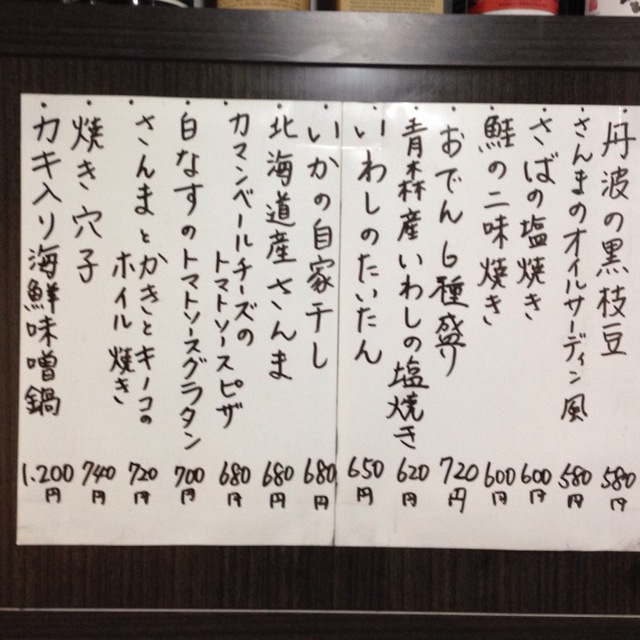 ・丹波の黒枝豆 580円
・さんまのオイルサーディン風 580円
・さばの塩焼き 600円
・鮭の二味焼き 600円
・おでん6種盛り 720円
・青森産いわしの塩焼き 620円
・いわしのたいたん 650円
・いかの自家干し 680円
・北海道産さんま 680円
・カマンベールチーズの
トマトソースピザ 680円
・白なすのトマトソースグラタン 700円
・さんまとかきとキノコの
ホイル焼き 720円
・焼き穴子 740円
・カキ入り海鮮味噌鍋 1.200円